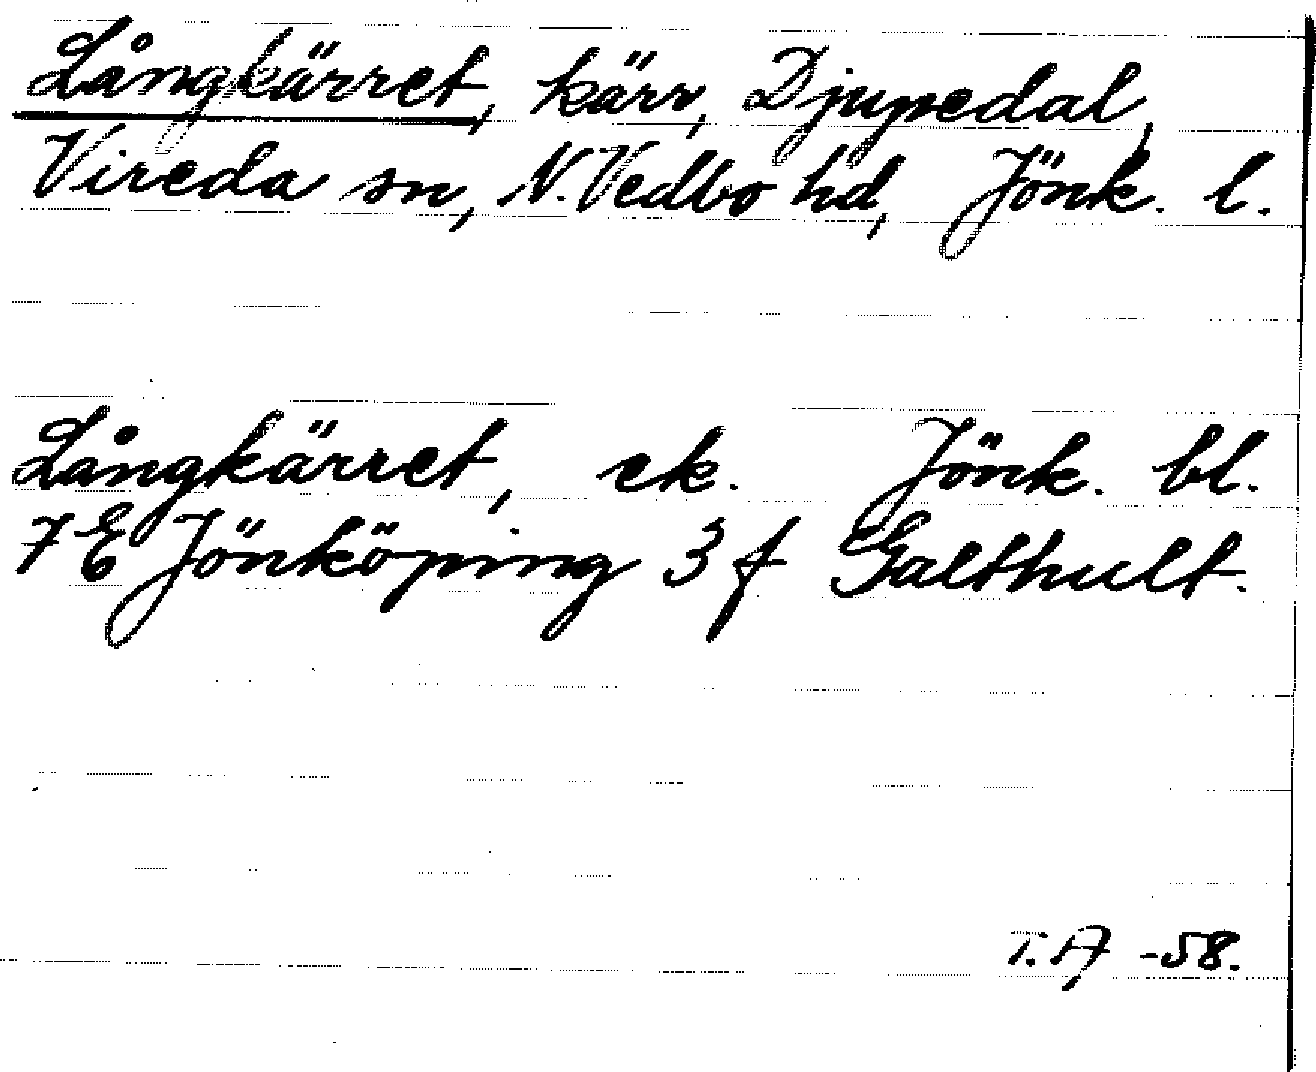 Långkärret, kärr, Djupedal,
Vireda sn, N. Vedbo hd, Jönk. l.
Långkärret, ek. Jönk. bl.
7 E Jönköping 3 f Galthult.
T. A -58.